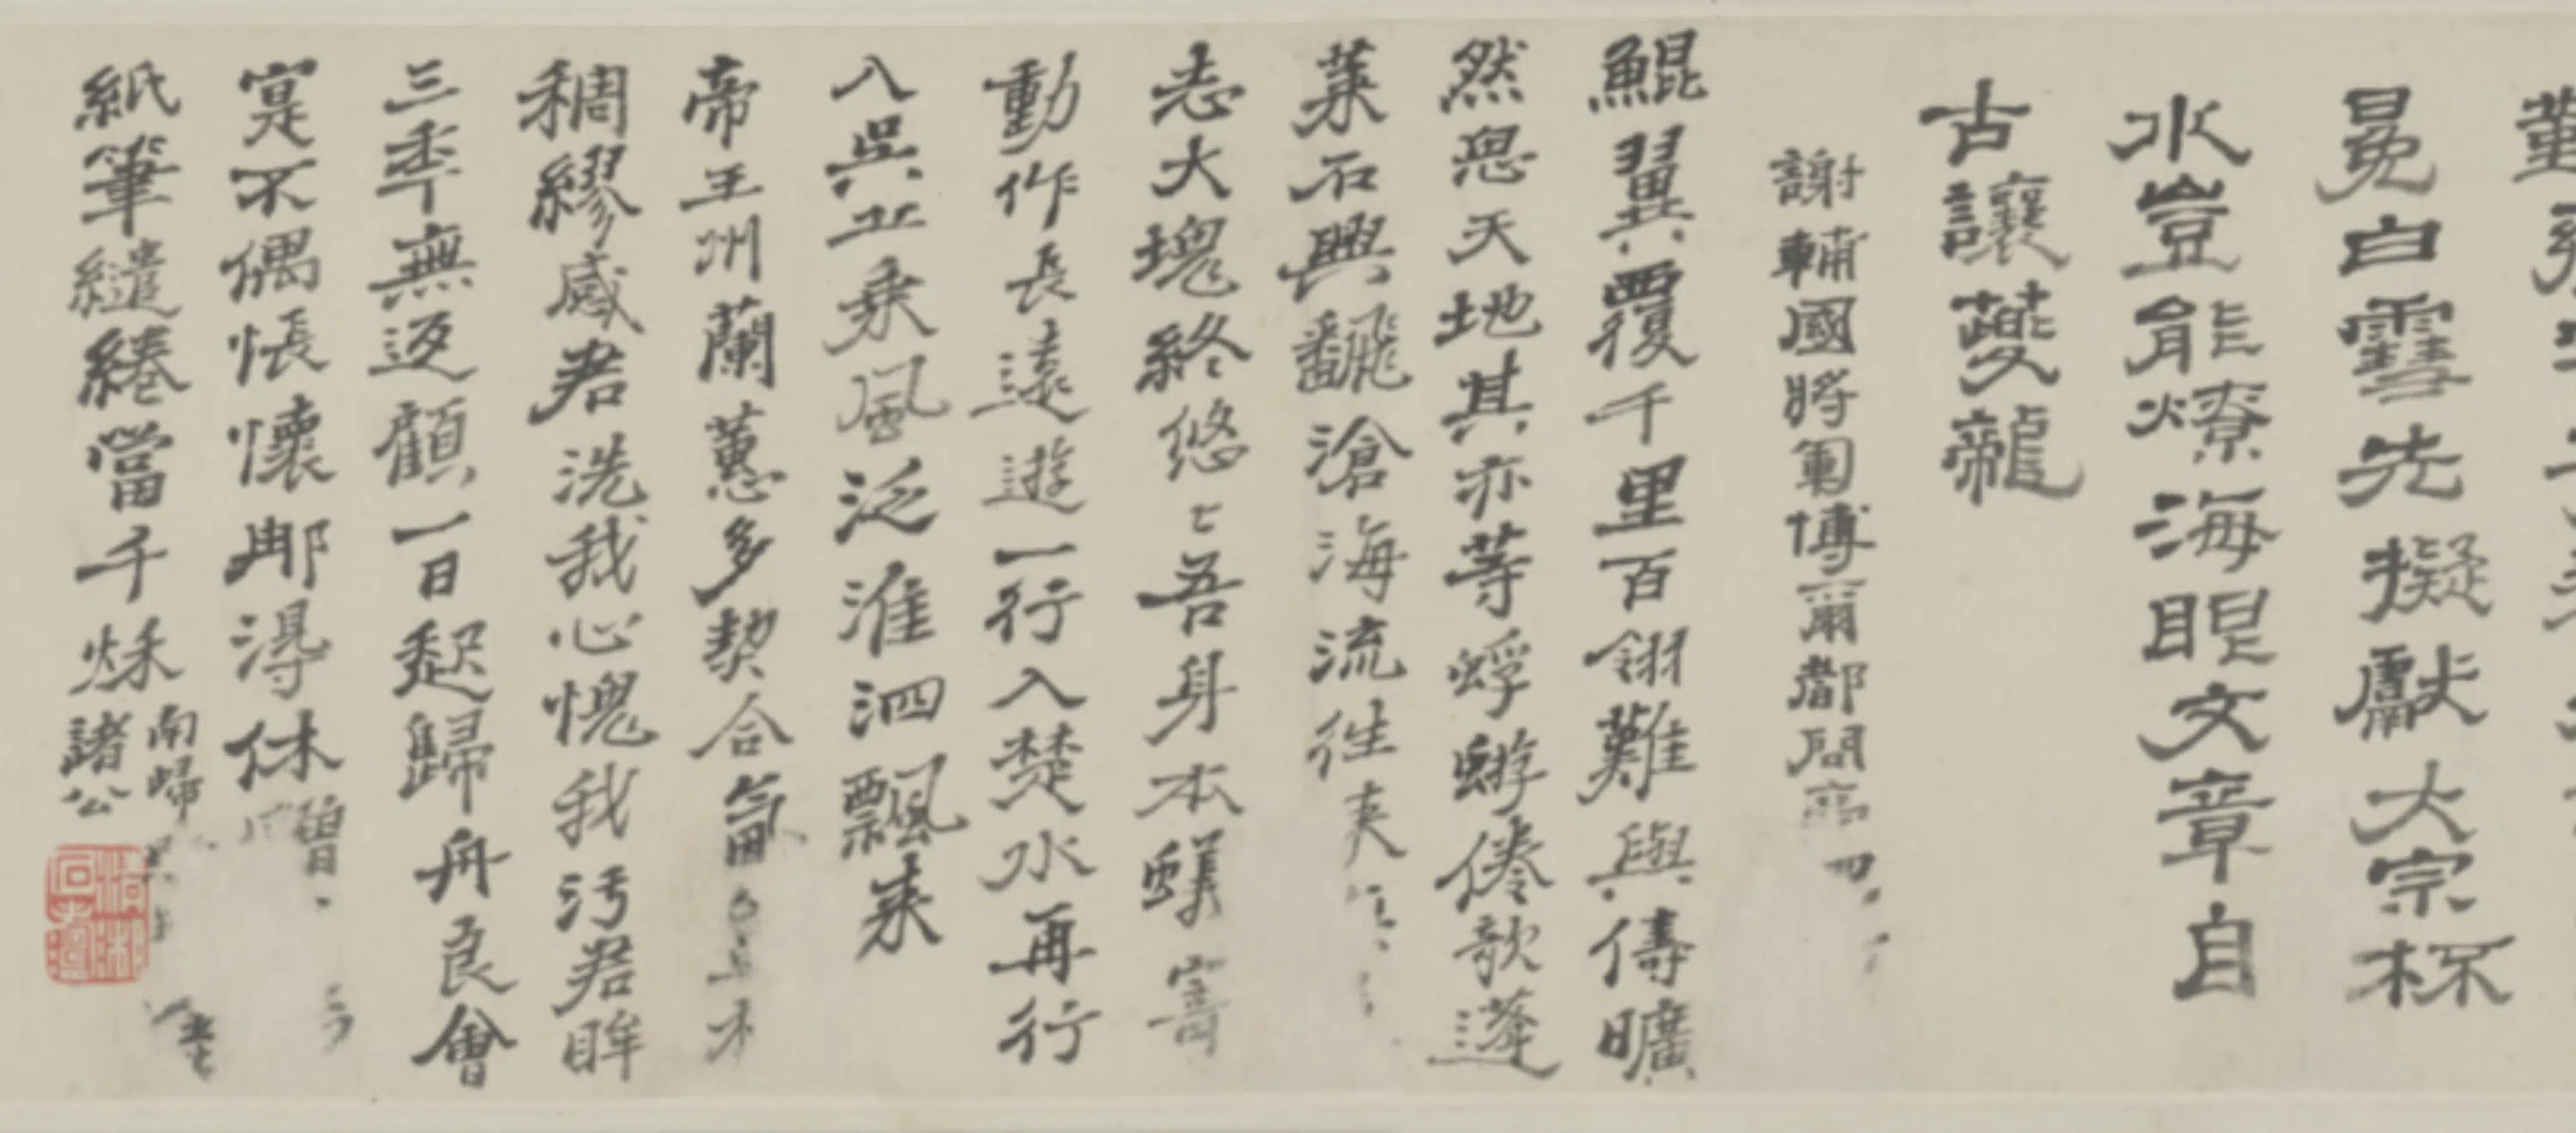 冕白雪先擬獻大宗杯
水豈能燎海眼文章自
古讓夔龍
謝輔國將軍博爾都問
鯤翼覆千里百翎難與儔曠
然思天地其亦等蜉蝣倦歌蓬
萊石興飜滄海流往
志大塊終悠〻吾身本蟻寄
動作長遠遊一行入楚水再行
入吳丘乘風泛淮泗飄来
帝王州蘭蕙多契合氣
稠繆感君洗我心愧我污君眸
三季無返顧一日趣歸舟良會
寔不偶悵懷那得休
紙筆繾綣當千秋南歸諸公